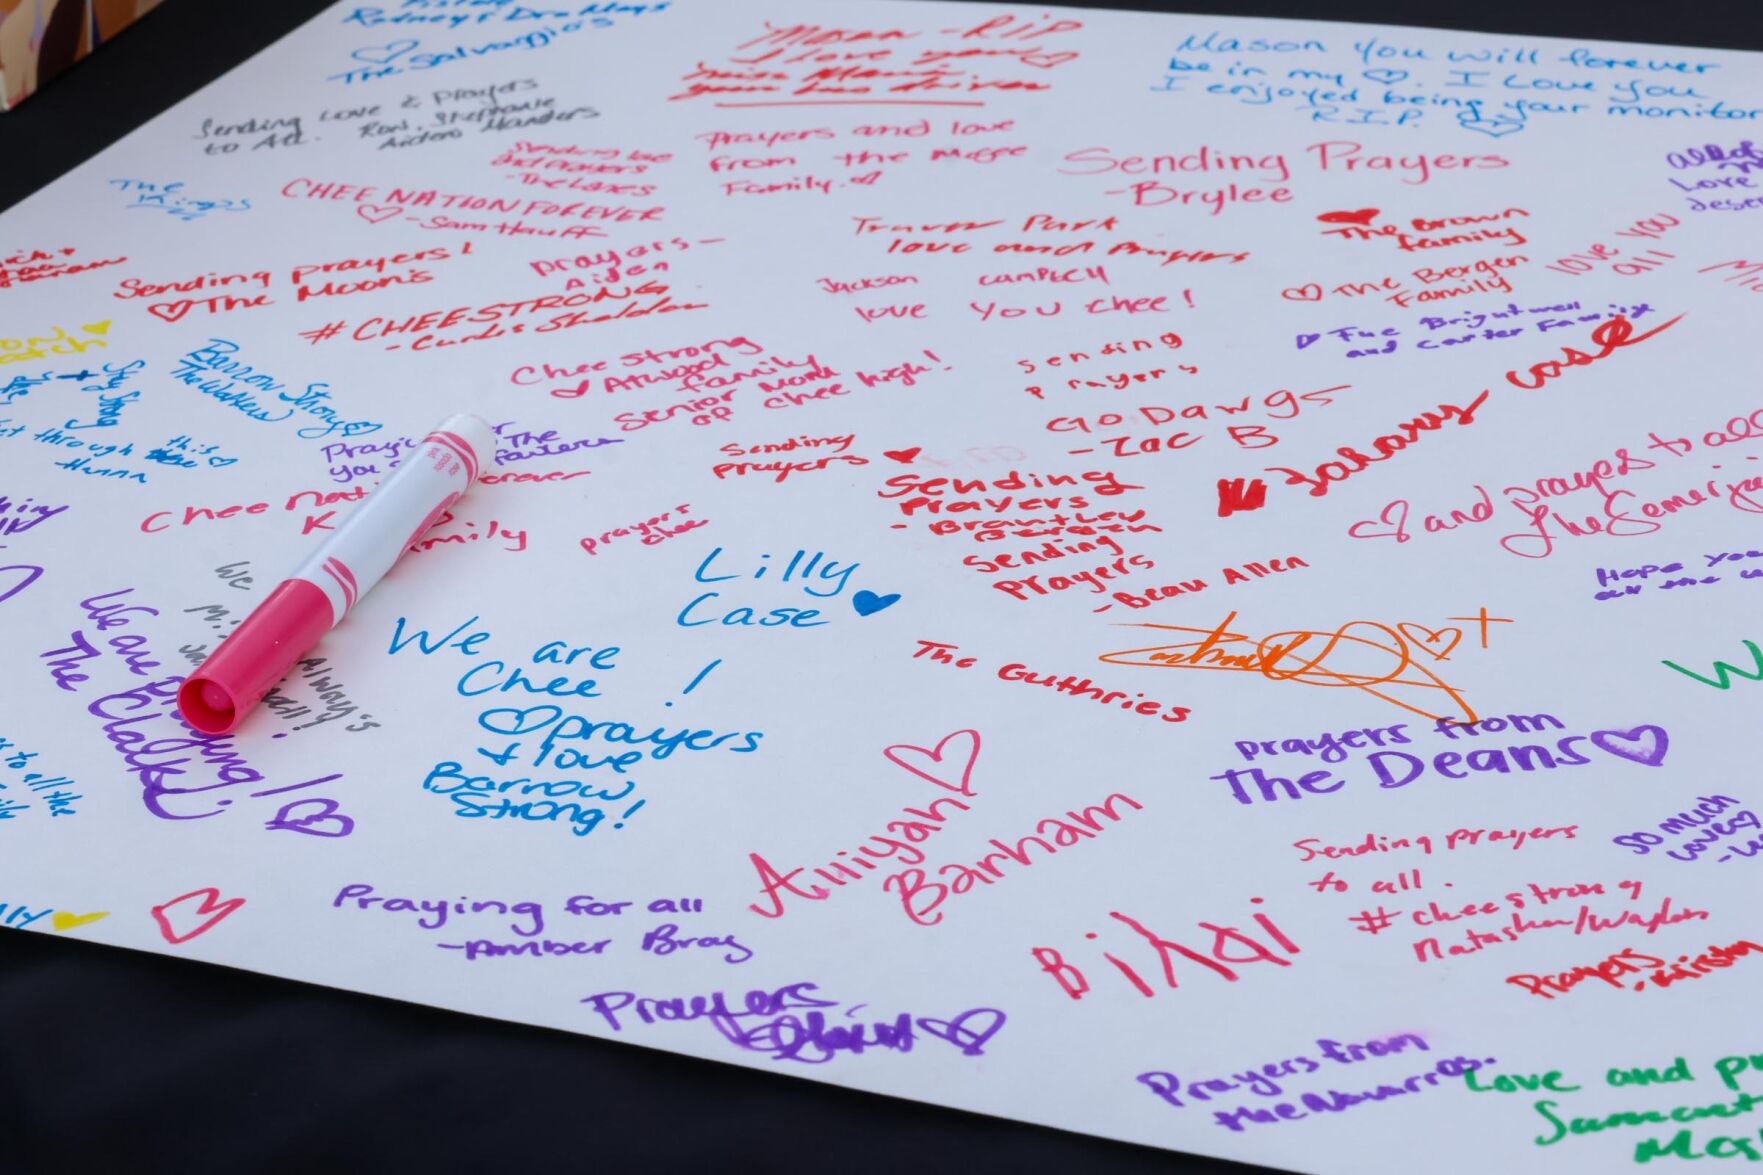 Rodney & Dra Mays
The Salvaggio's
Sending Love & Prayers
to All. Ron, Stephanie
Aiden Manders
Mason - RIP
I love you
your bus driver
Mason you will forever
be in my ♡. I Love you
I enjoyed being your monitor
R.I.P.
Prayers and love
from the Magee
Family.
Sending love
and prayers
- The Laxes
Sending Prayers
- Brylee
The
Kings
CHEE NATION FOREVER
- Sam Hauff
Love
Travor Park
love and Prayers
The Brown
family
love you
all
Sending prayers!
The Moon's
prayers -
Aiden
Jackson Campbell
love you chee!
The Bergen
Family
#CHEESTRONG
- Curtis Sheldon
The Brightwell
and Carter Family
Barrow Strong
The Walkers
Chee Strong
Atwood
family
Senior Mom
of Chee high!
sending
prayers
Go Dawgs
- Zac B
Jahavus Case
through this
Hanna
Sending
prayers
Chee Nati
mily
prayers
Chee
Sending
Prayers
- Brantley
Sending
Prayers
- Beau Allen
and prayers to all
We
Always
Lilly
Case
We are
Chee !
prayers
+ love
Barrow
Strong!
We are praying!
The Clark
The Guthries
W
Hope you
Prayers from
The Deans
to all the
Aliiyah
Barham
Sending prayers
to all.
#cheestrong
Natasha/Waylon
So much
love
Praying for all
- Amber Bray
Bihai
Prayers
Prayers
Prayers from
the Navarros.
Love and pr